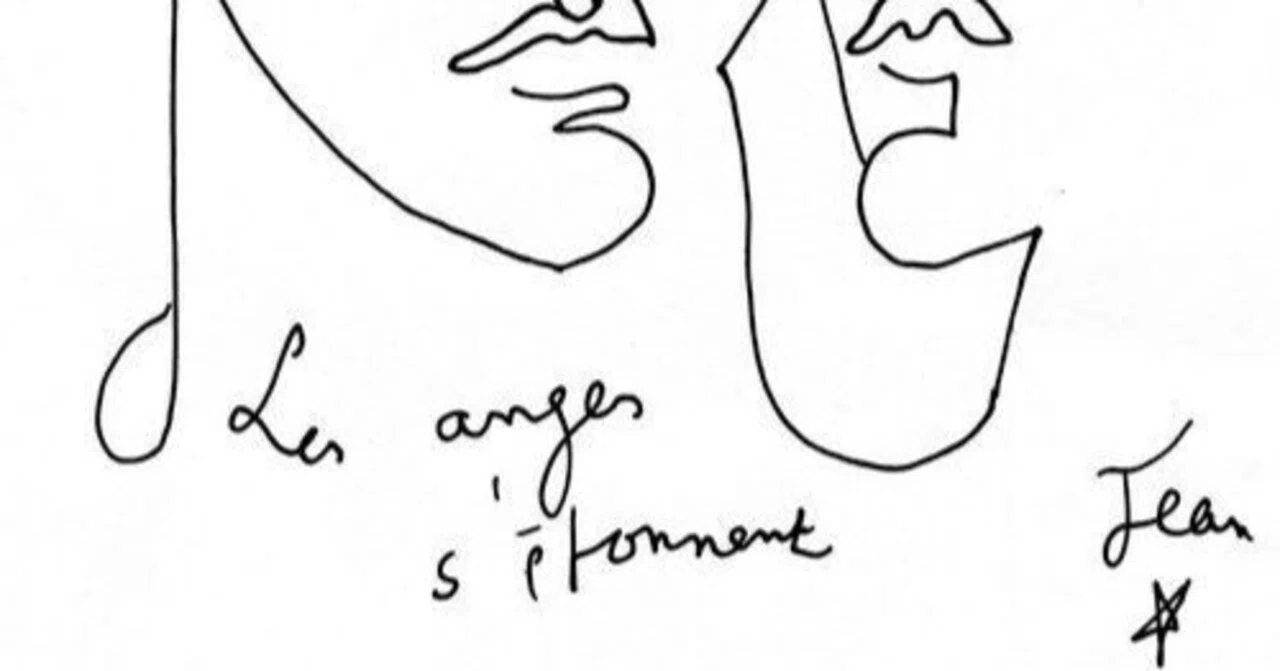 Les anges
s'étonnent
Jean